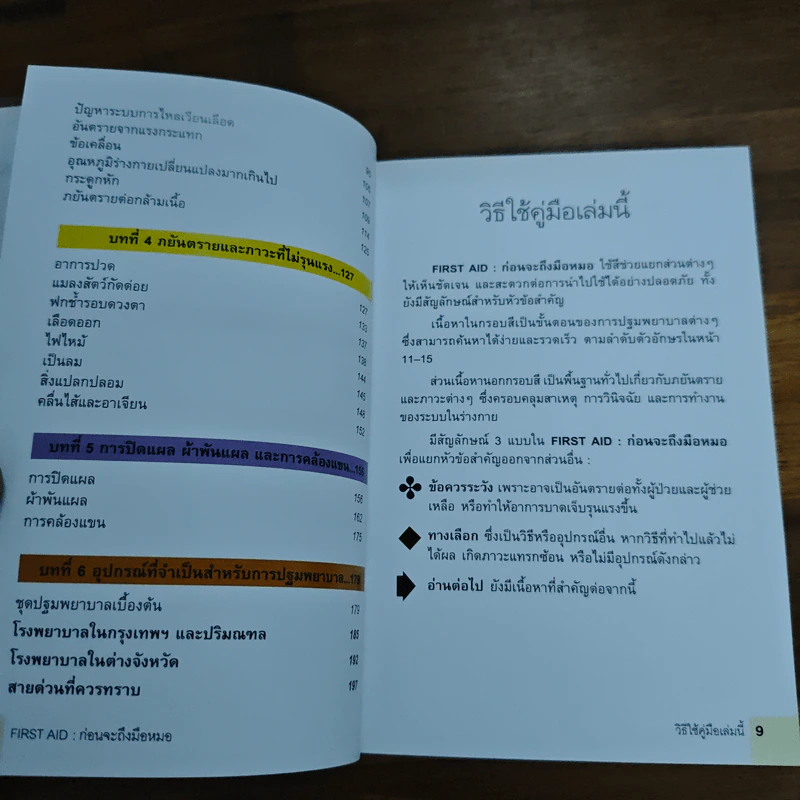 ปัญหาระบบการไหลเวียนเลือด
อันตรายจากแรงกระแทก
ข้อเคลื่อน 95
อุณหภูมิร่างกายเปลี่ยนแปลงมากเกินไป 106
กระดูกหัก 107
ภยันตรายต่อกล้ามเนื้อ 109
114
120
บทที่ 4 ภยันตรายและภาวะที่ไม่รุนแรง...127
อาการปวด 127
แมลงสัตว์กัดต่อย 133
ฟกช้ำรอบดวงตา 137
เลือดออก 138
ไฟไหม้ 144
เป็นลม 146
สิ่งแปลกปลอม 148
คลื่นไส้และอาเจียน 152
บทที่ 5 การปิดแผล ผ้าพันแผล และการคล้องแขน...156
การปิดแผล 156
ผ้าพันแผล 162
การคล้องแขน 175
บทที่ 6 อุปกรณ์ที่จำเป็นสำหรับการปฐมพยาบาล...179
ชุดปฐมพยาบาลเบื้องต้น 179
โรงพยาบาลในกรุงเทพฯ และปริมณฑล 185
โรงพยาบาลในต่างจังหวัด 192
สายด่วนที่ควรทราบ 197
FIRST AID : ก่อนจะถึงมือหมอ
วิธีใช้คู่มือเล่มนี้
FIRST AID : ก่อนจะถึงมือหมอ ใช้สีช่วยแยกส่วนต่างๆ
ให้เห็นชัดเจน และสะดวกต่อการนำไปใช้ได้อย่างปลอดภัย ทั้ง
ยังมีสัญลักษณ์สำหรับหัวข้อสำคัญ
เนื้อหาในกรอบสีเป็นขั้นตอนของการปฐมพยาบาลต่างๆ
ซึ่งสามารถค้นหาได้ง่ายและรวดเร็ว ตามลำดับตัวอักษรในหน้า
11–15
ส่วนเนื้อหานอกกรอบสี เป็นพื้นฐานทั่วไปเกี่ยวกับภยันตราย
และภาวะต่างๆ ซึ่งครอบคลุมสาเหตุ การวินิจฉัย และการทำงาน
ของระบบในร่างกาย
มีสัญลักษณ์ 3 แบบใน FIRST AID : ก่อนจะถึงมือหมอ
เพื่อแยกหัวข้อสำคัญออกจากส่วนอื่น :
ข้อควรระวัง เพราะอาจเป็นอันตรายต่อทั้งผู้ป่วยและผู้ช่วย
เหลือ หรือทำให้อาการบาดเจ็บรุนแรงขึ้น
ทางเลือก ซึ่งเป็นวิธีหรืออุปกรณ์อื่น หากวิธีที่ทำไปแล้วไม่
ได้ผล เกิดภาวะแทรกซ้อน หรือไม่มีอุปกรณ์ดังกล่าว
อ่านต่อไป ยังมีเนื้อหาที่สำคัญต่อจากนี้
วิธีใช้คู่มือเล่มนี้ 9